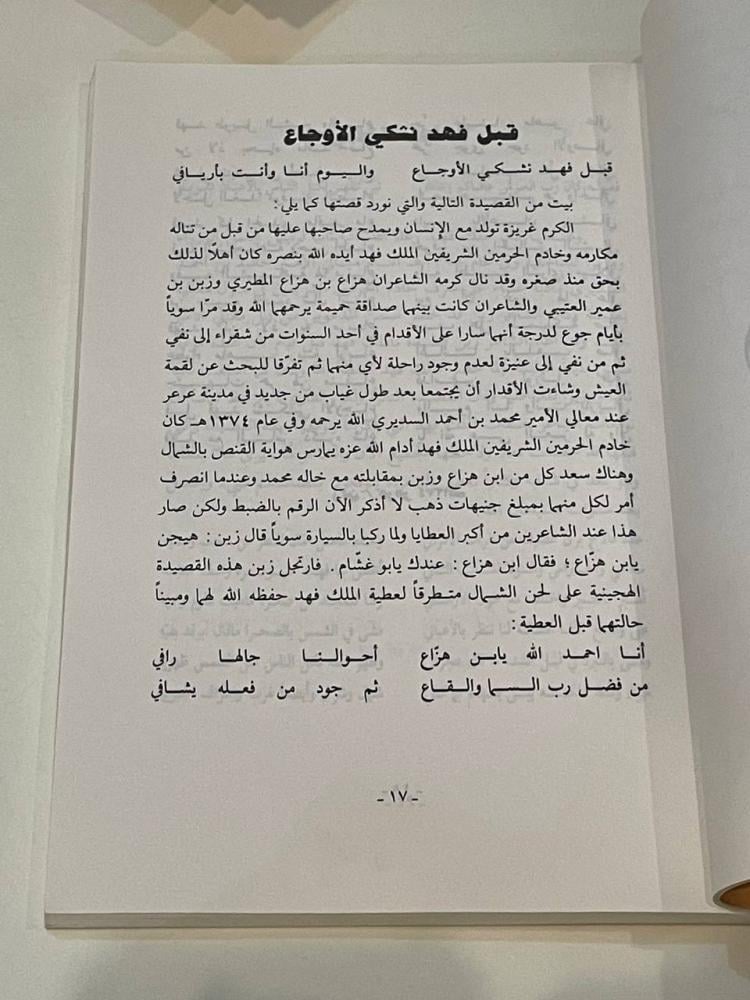 قبل فهد نشكي الأوجاع
قبل فهد نشكي الأوجاع واليوم أنا وأنت بأريافي
بيت من القصيدة التالية والتي نورد قصتها كما يلي :
الكرم غريزة تولد مع الإنسان ويمدح صاحبها عليها من قبل من تناله
مكارمه وخادم الحرمين الشريفين الملك فهد أيده الله بنصره كان أهلاً لذلك
بحق منذ صغره وقد نال كرمه الشاعران هزاع بن هزاع المطيري وزبن بن
عمير العتيبي والشاعران كانت بينهما صداقة حميمة يرحمهما الله وقد مرّا سوياً
بأيام جوع لدرجة أنهما سارا على الأقدام في أحد السنوات من شقراء إلى نفي
ثم من نفي إلى عنيزة لعدم وجود راحلة لأي منهما ثم تفرّقا للبحث عن لقمة
العيش وشاءت الأقدار أن يجتمعا بعد طول غياب من جديد في مدينة عرعر
عند معالي الأمير محمد بن أحمد السديري الله يرحمه وفي عام ١٣٧٤هـ كان
خادم الحرمين الشريفين الملك فهد أدام الله عزه يمارس هواية القنص بالشمال
وهناك سعد كل من ابن هزاع وزبن بمقابلته مع خاله محمد وعندما انصرف
أمر لكل منهما بمبلغ جنيهات ذهب لا أذكر الآن الرقم بالضبط ولكن صار
هذا عند الشاعرين من أكبر العطايا ولما ركبا بالسيارة سوياً قال زبن : هيجن
يابن هزّاع ؛ فقال ابن هزاع : عندك يابو غشّام . فارتجل زبن هذه القصيدة
الهجينية على لحن الشمال متطرقاً لعطية الملك فهد حفظه الله لهما ومبيناً
حالتهما قبل العطية :
أنا احمد الله يابن هزّاع أحوالنا جالها رافي
من فضل رب السما والقاع ثم جود من فعله يشافي
- ١٧ -